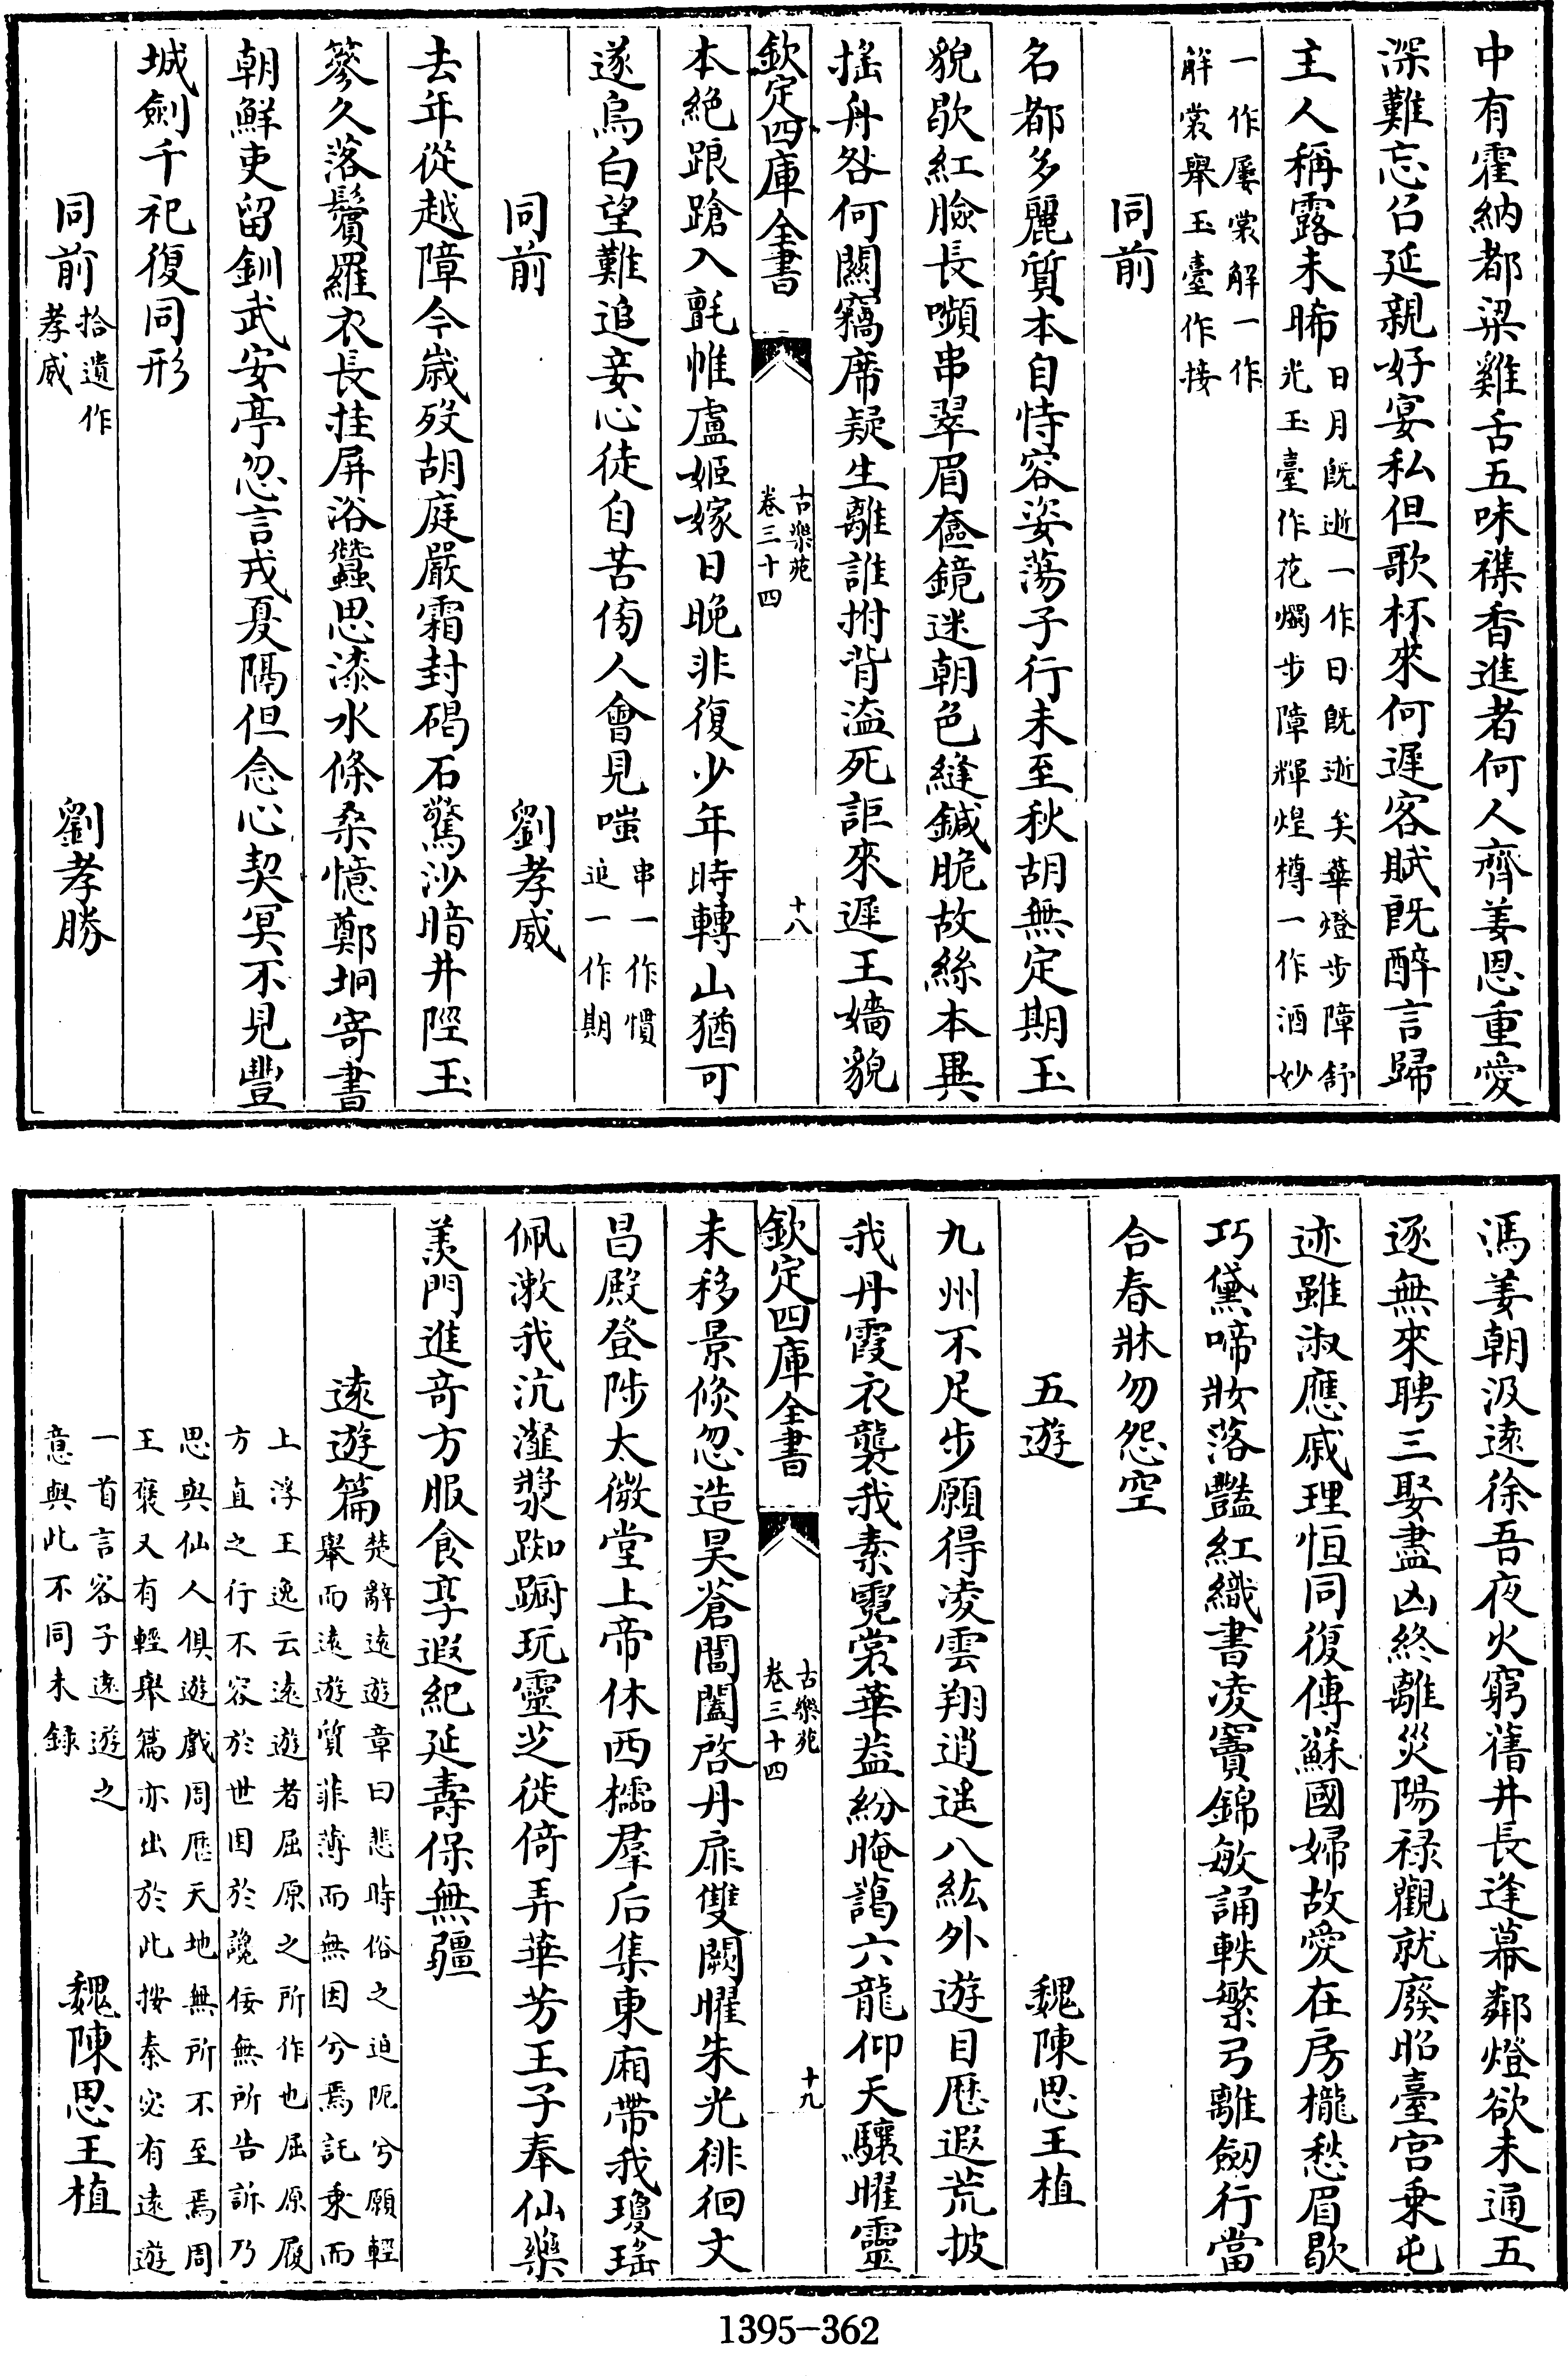 中有霍納都梁雞舌五味襍香進者何人齊姜恩重愛
深難忘召延親好宴私但歌杯來何遲客賦既醉言歸
主人稱露未晞日月既逝一作日既逝矣華燈步障舒
光玉臺作花燭步障輝煌樽一作酒妙
一作屢裳解一作
解裳舉玉臺作接
同前
名都多麗質本自恃容姿蕩子行未至秋胡無定期玉
貌歇紅臉長嚬串翠眉奩鏡迷朝色縫鍼脆故絲本異
搖舟咎何關竊席疑生離誰拊背溢死詎來遲王嬙貌
欽定四庫全書
古樂苑
卷三十四
十八
本絕踉蹌入氈帷盧姬嫁日晚非復少年時轉山猶可
遂烏白望難追妾心徒自苦傍人會見嗤串一作慣
追一作期
同前 劉孝威
去年從越障今歲殁胡庭嚴霜封碣石驚沙暗井陘玉
篸久落鬢羅衣長挂屏浴蠶思漆水條桑憶鄭坰寄書
朝鮮吏留釧武安亭忽言戎夏隔但念心契冥不見豐
城劍千祀復同形
同前拾遺作
孝威 劉孝勝
馮姜朝汲遠徐吾夜火窮舊井長逢幕鄰燈欲未通五
逐無來聘三娶盡凶終離災陽祿觀就廢昭臺宮乗屯
迹雖淑應戚理恒同復傳蘇國婦故愛在房櫳愁眉歇
巧黛啼妝落豔紅織書凌竇錦敏誦軼繁弓離劒行當
合春牀勿怨空
五遊 魏陳思王植
九州不足步願得凌雲翔逍遥八紘外遊目歷遐荒披
我丹霞衣襲我素霓裳華葢紛晻藹六龍仰天驤曜靈
欽定四庫全書
古樂苑
卷三十四
十九
未移景倐忽造昊蒼閶闔啓丹扉雙闕曜朱光徘徊文
昌殿登陟太微堂上帝休西櫺羣后集東廂帶我瓊瑤
佩漱我沆瀣漿踟蹰玩靈芝徙倚弄華芳王子奉仙藥
羨門進奇方服食享遐紀延壽保無疆
遠遊篇楚辭遠遊章曰悲時俗之迫阨兮願輕
舉而遠遊質菲薄而無因兮焉託乗而
上浮王逸云遠遊者屈原之所作也屈原履
方直之行不容於世困於讒佞無所告訴乃
思與仙人俱遊戲周歷天地無所不至焉周
王褒又有輕舉篇亦出於此按秦宓有遠遊
一首言客子遠遊之
意與此不同未録
魏陳思王植
1395-362